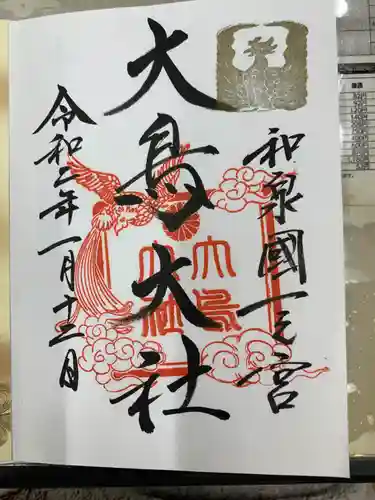 和泉國一之宮
大鳥大社
令和二年一月十三日
大鳥
大社